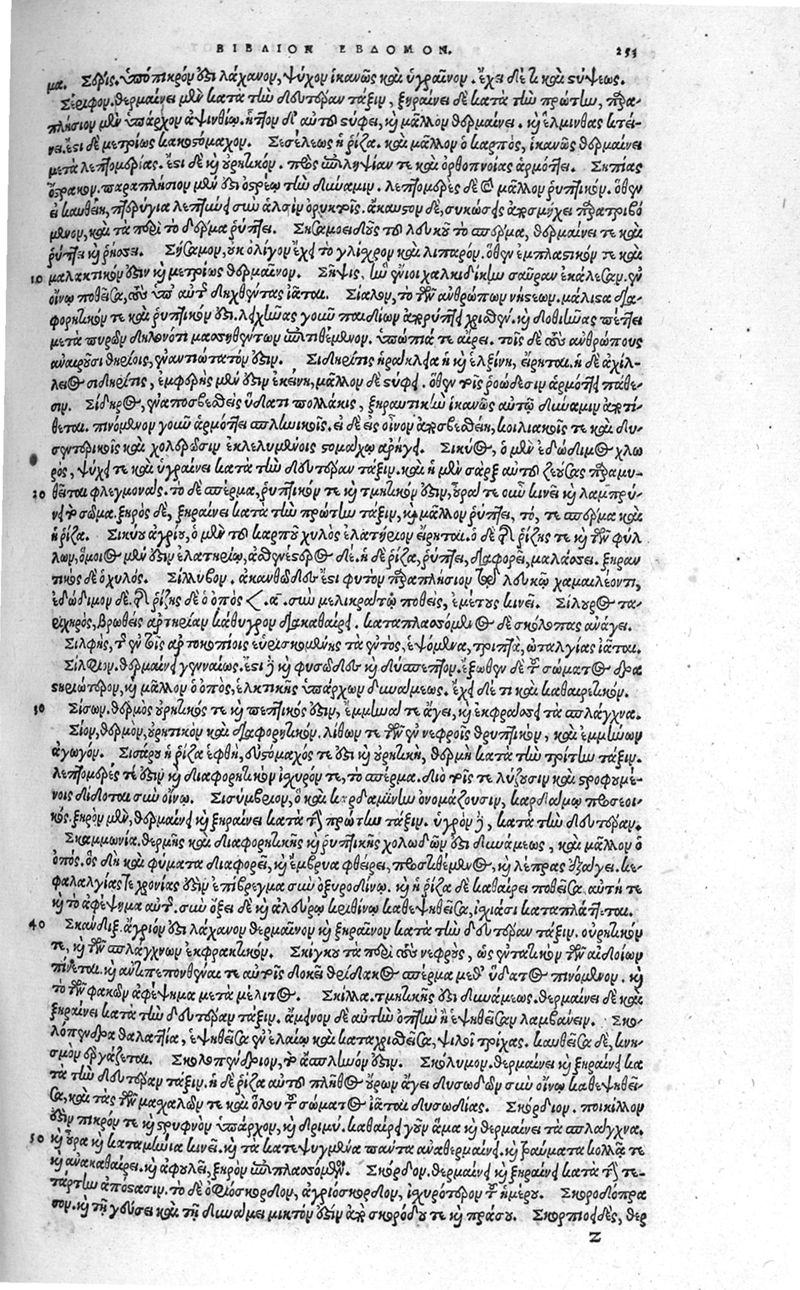 ΒΙΒΛΙΟΝ ΕΒΔΟΜΟΝ. 253
μα. Σέρις. ὑπόπικρόν ἐστι λάχανον, ψύχον ἱκανῶς καὶ ὑγραῖνον. ἔχει δέ τι καὶ στύψεως.
Σέριφον. θερμαίνει μὲν κατὰ τὴν δευτέραν τάξιν, ξηραίνει δὲ κατὰ τὴν πρώτην, παρα-
πλήσιον μὲν ὑπάρχον ἀψινθίῳ. ἧττον δὲ αὐτοῦ στύφει, καὶ μᾶλλον θερμαίνει. καὶ ἕλμινθας κτεί-
νει. ἔστι δὲ μετρίως κακοστόμαχον. Σεσέλεως ἡ ῥίζα. καὶ μᾶλλον ὁ καρπὸς, ἱκανῶς θερμαίνει
μετὰ λεπτομερείας. ἔστι δὲ καὶ οὐρητικόν. πρὸς ἐπιληψίαν τε καὶ ὀρθοπνοίας ἁρμόττει. Σηπίας
ὄστρακον. παραπλήσιον μέν ἐστι ὀστρέῳ τὴν δύναμιν. λεπτομερὲς δὲ καὶ μᾶλλον ῥυπτικόν. ὅθεν
εἰ καυθείη, πτερύγια λεπτύνει σὺν ἁλσὶν ὀρυκτοῖς. ἄκαυστον δὲ, συκώσεις ἀποσμήχει παρατριβό
μενον, καὶ τὰ περὶ τὸ δέρμα ῥύπτει. Σησαμοειδοῦς τοῦ λευκοῦ τὸ σπέρμα, θερμαίνει τε καὶ
ῥύπτει καὶ ῥήσσει. Σήσαμον, οὐκ ὀλίγον ἔχει τὸ γλίσχρον καὶ λιπαρόν. ὅθεν ἐμπλαστικόν τε καὶ
10 μαλακτικόν ἐστιν καὶ μετρίως θερμαῖνον. Σὴψις, ἣν ἔνιοι χαλκιδικὴν σαῦραν ἐκάλεσαν. ἐν
οἴνῳ ποθεῖσα, τοὺς ὑπ' αὐτῆς δηχθέντας ἰᾶται. Σίαλον, τὸ τῶν ἀνθρώπων νήστεων. μάλιστα δια-
φορητικόν τε καὶ ῥυπτικόν ἐστι. λειχῆνας γοῦν παιδίων ἀπορύπτει χρισθέν. καὶ δοθιῆνας πέττει
μετὰ πυρῶν δηλονότι μασηθέντων ἐπιτιθέμενον. ὑπώπιά τε αἴρει. τοῖς δὲ τοὺς ἀνθρώπους
ἀναιροῦσι θηρίοις, ἐναντιώτατόν ἐστιν. Σιδηρῖτις ἡρακλεία ἢ καὶ ἑλξίνη, εἴρηται. ἡ δὲ ἀχίλ-
λειος σιδηρῖτις, ἐμφερὴς μέν ἐστιν ἐκείνῃ, μᾶλλον δὲ στύφει. ὅθεν τοῖς ῥοώδεσιν ἁρμόττει πάθε-
σιν. Σίδηρος, ἐναποσβεσθεὶς ὕδατι πολλάκις, ξηραντικὴν ἱκανῶς αὐτῷ δύναμιν ἀποτί-
θεται. πινόμενον γοῦν ἁρμόττει σπληνικοῖς. εἰ δὲ εἰς οἶνον ἀποσβεσθείη, κοιλιακοῖς τε καὶ δυ-
σεντερικοῖς καὶ χολερώδεσιν ἐκλελυμένοις στομάχῳ ἀρήγει. Σίκυος, ὁ μὲν ἐδώδιμος χλω
ρὸς, ψύχει τε καὶ ὑγραίνει κατὰ τὴν δευτέραν τάξιν. καὶ ἡ μὲν σὰρξ αὐτοῦ ζεούσας παραμυ-
20 θεῖται φλεγμονάς. τὸ δὲ σπέρμα, ῥυπτικόν τε καὶ τμητικόν ἐστιν, οὖρά τε οὖν κινεῖ καὶ λαμπρύ-
νει τὸ σῶμα. ξηρὸς δὲ, ξηραίνει κατὰ τὴν πρώτην τάξιν, καὶ μᾶλλον ῥύπτει, τό, τε σπέρμα καὶ
ἡ ῥίζα. Σικύου ἀγρίου, ὁ μὲν τοῦ καρποῦ χυλὸς ἐλατήριον εἴρηται. ὁ δὲ τῆς ῥίζης τε καὶ τῶν φύλ
λων, ὅμοιος μέν ἐστιν ἐλατηρίῳ, ἀσθενέστερος δέ. ἡ δὲ ῥίζα, ῥύπτει, διαφορεῖ, μαλάσσει. ξηραν
τικὸς δὲ ὁ χυλός. Σίλλυβον. ἀκανθῶδές ἐστι φυτὸν παραπλήσιον τῷ λευκῷ χαμαιλέοντι,
ἐδώδιμον δέ. τῆς ῥίζης δὲ ὁ ὀπὸς &lt;. α. σὺν μελικράτῳ ποθεὶς, ἐμέτους κινεῖ. Σίλουρος τα-
ρίχηρὸς, βρωθεὶς ἀρτηρίαν κάθυγρον διακαθαίρει. καταπλασσόμενος δὲ σκόλοπας ἀνάγει.
Σίλφης, τῆς ἐν τοῖς ἀρτοκοπίοις εὑρισκομένης τὰ ἐντὸς, ἑψόμενα, τριπτὰ, ὠταλγίας ἰᾶται.
Σίλφιον. θερμαίνει γενναίως. ἔστι δὲ καὶ φυσῶδες καὶ δύσπεπτον. ἔξωθεν δὲ τοῦ σώματος δρα
στηριώτερον, καὶ μᾶλλον ὁ ὀπὸς, ἑλκτικῆς ὑπάρχων δυνάμεως. ἔχει δέ τι καὶ καθαιρετικόν.
30 Σίσων. θερμὸς οὐρητικός τε καὶ πεπτικός ἐστιν, ἔμμηνά τε ἄγει, καὶ ἐκφράσσει τὰ σπλάγχνα.
Σίον, θερμὸν, οὐρητικὸν καὶ διαφορητικόν. λίθων τε τῶν ἐν νεφροῖς θρυπτικὸν, καὶ ἐμμήνων
ἀγωγόν. Σισάρου ἡ ῥίζα ἑφθὴ, εὐστόμαχός τέ ἐστι καὶ οὐρητικὴ, θερμὴ κατὰ τὴν τρίτην τάξιν.
λεπτομερὲς τέ ἐστιν καὶ διαφορητικὸν ἰσχυρόν τε, τὸ σπέρμα. διὸ τοῖς τε λύζουσιν καὶ στροφουμέ-
νοις δίδοται σὺν οἴνῳ. Σισύμβριον, ὃ καὶ καρδαμίνην ὀνομάζουσιν, καρδάμῳ προσεοι-
κός. ξηρὸν μὲν, θερμαίνει καὶ ξηραίνει κατὰ τὴν πρώτην τάξιν. ὑγρὸν δὲ, κατὰ τὴν δευτέραν.
Σκαμμωνία. θερμῆς καὶ διαφορητικῆς καὶ ῥυπτικῆς χολωδῶν ἐστι δυνάμεως, καὶ μᾶλλον ὁ
ὀπός. ὃς δὴ καὶ φύματα διαφορεῖ, καὶ ἔμβρυα φθείρει, προστιθέμενος, καὶ λέπρας ἐξάγει. κε-
φαλαλγίας τε χρονίας ἐστὶν ἐπίβρεγμα σὺν ὀξυροδίνῳ. καὶ ἡ ῥίζα δὲ καθαίρει ποθεῖσα. αὐτή τε
καὶ τὸ ἀφέψημα αὐτῆς. σὺν ὄξει δὲ καὶ ἀλεύρῳ κριθίνῳ καθεψηθεῖσα, ἰσχιάσι καταπλάττεται.
40 Σκάνδιξ. ἄγριόν ἐστι λάχανον θερμαῖνον καὶ ξηραῖνον κατὰ τὴν δευτέραν τάξιν. οὐρητικόν
τε, καὶ τῶν σπλάγχνων ἐκφρακτικόν. Σκίγκου τὰ περὶ τοὺς νεφροὺς, ὡς ἐντατικὸν τῶν αἰδοίων
πίνεται. καὶ ἀντιπεπονθέναι τε αὐτοῖς δοκεῖ θρίδακος σπέρμα μεθ' ὕδατος πινόμενον. καὶ
τὸ τῶν φακῶν ἀφέψημα μετὰ μέλιτος. Σκίλλα. τμητικῆς ἐστι δυνάμεως. θερμαίνει δὲ καὶ
ξηραίνει κατὰ τὴν δευτέραν τάξιν. ἄμεινον δὲ αὐτὴν ὀπτὴν ἢ ἑψηθεῖσαν λαμβάνειν. Σκο-
λόπενδρα θαλαττία, ἑψηθεῖσα ἐν ἐλαίῳ καὶ καταχρισθεῖσα, ψιλοῖ τρίχας. καυθεῖσα δὲ, κνη-
σμὸν ἐργάζεται. Σκολοπένδριον, τὸ ἄσπληνόν ἐστιν. Σκόλυμον. θερμαίνει καὶ ξηραίνει κα
τὰ τὴν δευτέραν τάξιν. ἡ δὲ ῥίζα αὐτοῦ πλῆθος οὔρων ἄγει δυσωδῶν σὺν οἴνῳ καθεψηθεῖ-
σα, καὶ τὰς τῶν μασχαλῶν τε καὶ ὅλου τοῦ σώματος ἰᾶται δυσωδίας. Σκόρδιον. ποικίλλον
ἐστὶν πικρόν τε καὶ στρυφνὸν ὑπάρχον, καὶ δριμύ. καθαίρει γοῦν ἅμα καὶ θερμαίνει τὰ σπλάγχνα.
50 καὶ οὖρα καὶ καταμήνια κινεῖ. καὶ τὰ κατεψυγμένα πάντα ἀναθερμαίνει. καὶ τραύματα κολλᾷ τε
καὶ ἀνακαθαίρει. καὶ ἀφουλεῖ, ξηρὸν ἐπιπλασσόμενον. Σκόρδον. θερμαίνει καὶ ξηραίνει κατὰ τὴν τε-
τάρτην ἀπόστασιν. τὸ δὲ ὀφιόσκορδον, ἀγριόσκορδον, ἰσχυρότερον τοῦ ἡμέρου. Σκοροδόπρα
σον. καὶ τῇ γεύσει καὶ τῇ δυνάμει μικτόν ἐστιν ἀπὸ σκορόδου τε καὶ πράσου. Σκορπιοειδὲς, θερ
Z